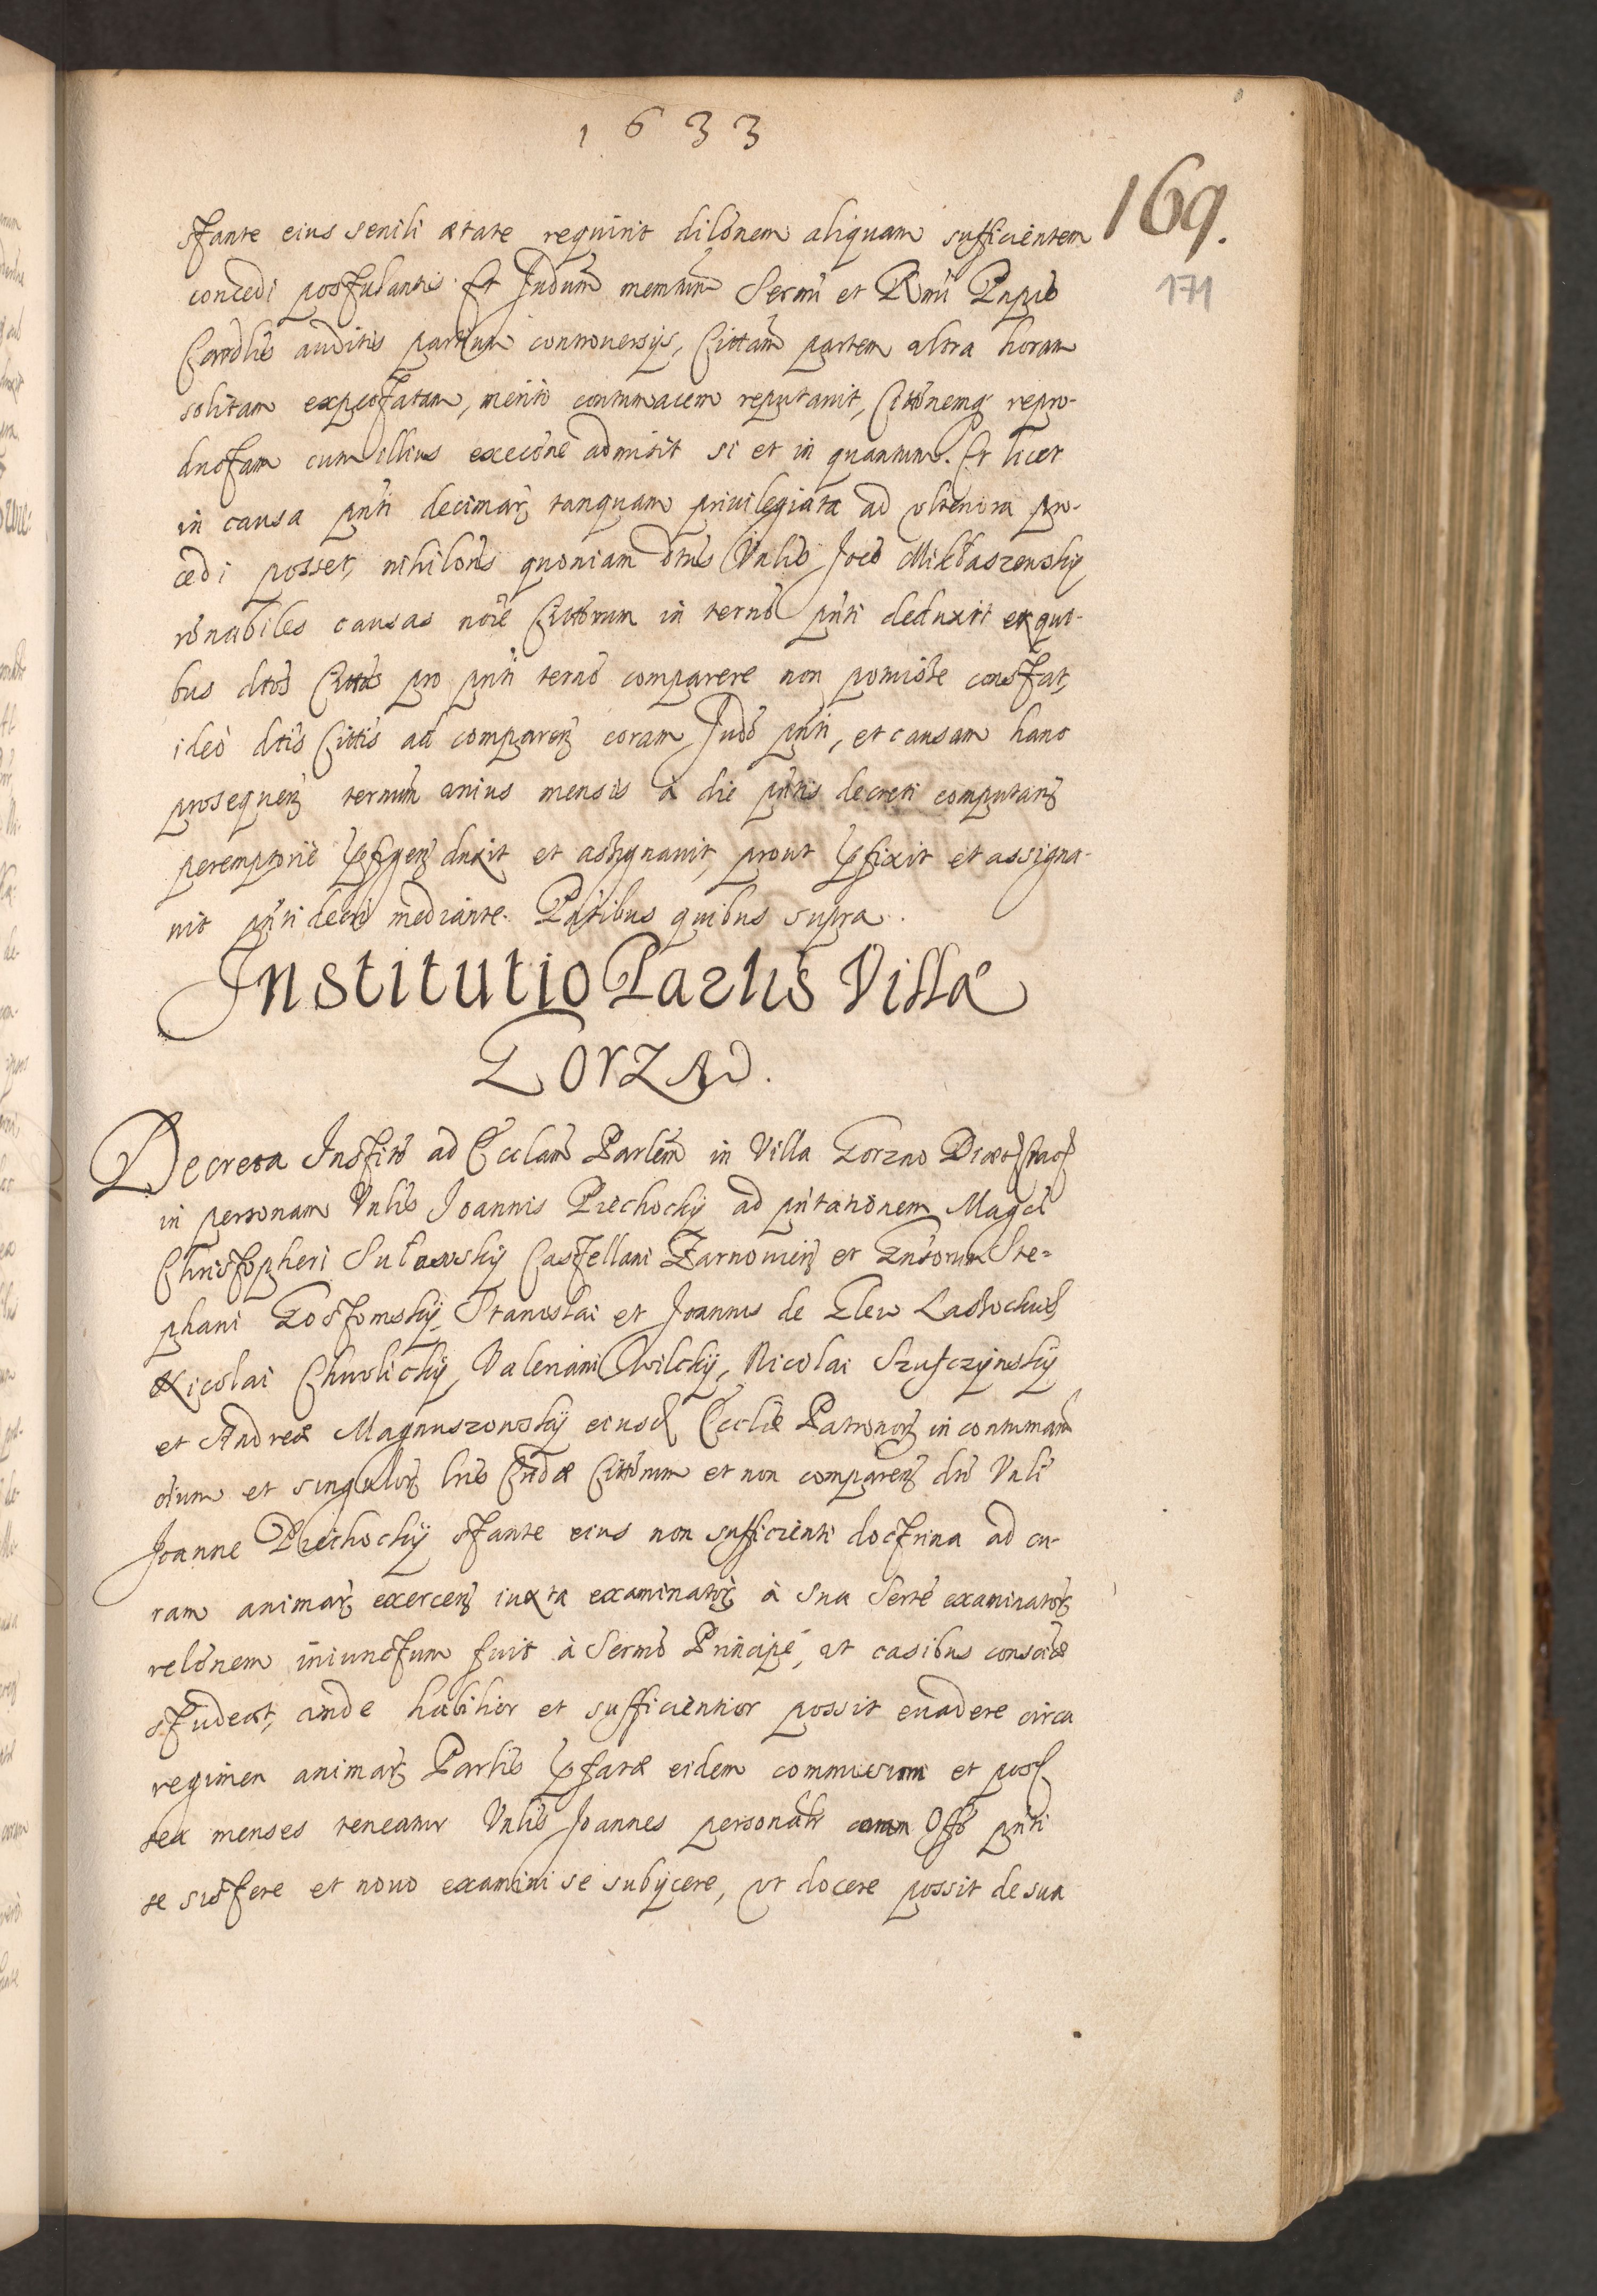 1633
169.
171
stante eius senili ætate requirit dilõnem aliquam sufficientem
concedi postulantis. Et Judiũm memtum Sermi et Rmi Pnpis
Cardlis auditis partium controversijs, Cittam partem ultra horam
solitam expectatam, meritò contumacem reputauit, Cittõnemq repro-
ductam cum illius execõne admisit si et in quantum. Et licet
in causa pñti decimarz tanquam priuilegiata ad vlteriora pro-
cedi posset, nihilom̃s quoniam dtus Vnlis Joẽs Mikłaszewsky
rõnabiles causas noĩe Cittorum in termõ pñti deduxit ex qui-
bus dtos Cittos pro pñti termõ comparere non potuisse constat,
ideò dtis Cittis ad comparenz coram Judõ pñti, et causam hanc
prosequenz termũm unius mensis à die pñtis decreti computanz
peremptoriè pfigenz duxit et assignauit, prout pfixit et assigna-
uit pñti decrõ mediante. Pñtibus quibus supra.
Institutio Paɾlis Villæ
Gorzno.
Decreta Institõ ad Ecclam Parlẽm in Villa Gorzno
in personam Vnlis Joannis Piechocky ad pñtationem Magci
Christopheri Sulowsky Castellani Żarnouienz et Gnsorum Ste-
phani Gostomsky, Stanislai et Joannis de Lastochich
Nicolai Chwolicky, Valeriani Wilcky, Nicolai Szulczynsky
et Andreæ Magnuszowsky eiusd Eccliæ Patronorz in contumam
oium et singulorz Cittorum et non comparenz dto Vnli
Joanne Piechocky stante eius non sufficienti doctrina ad cu-
ram animarz exercenz iuxta examinatorz à Sua Sertẽ examinatorz
relõnem iniunctum fuit à Sermo Principe, ut casibus consciæ
studeat, unde habilior et sufficientior possit euadere circa
regimen animarz Parlis pfatæ eidem commissum et post
sex menses teneatur Vnlis Joannes personalr coram Offõ pñti
se sistere et nouo examini se subijcere, vt docere possit de sua